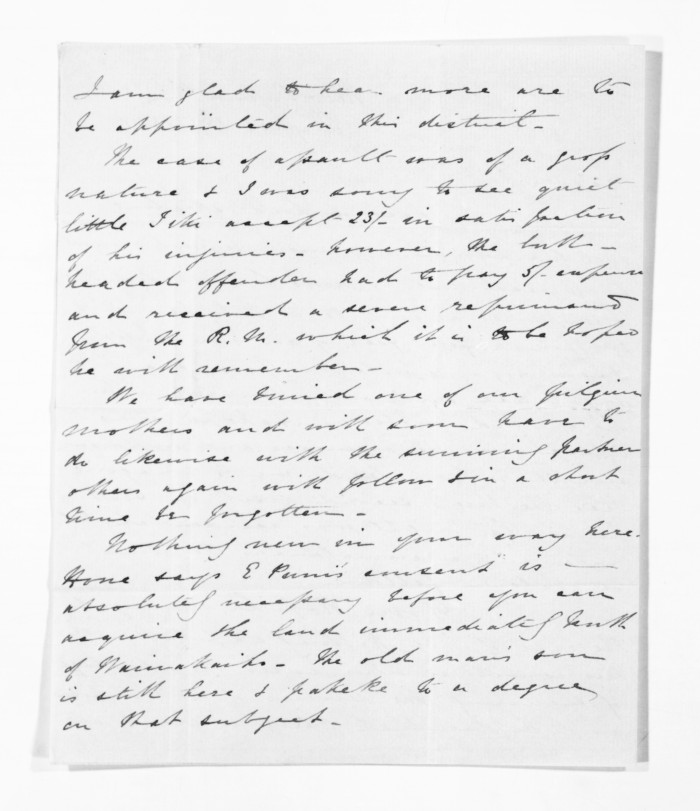 I am glad to hear more are to
be appointed in this district -
The case of assault was of a gross
nature & I was sorry to see quiet
little Tiki accept 23/- in satisfaction
of his injuries - however, the bull -
headed offender had to pay 5/- expense
and received a severe reprimand
from the R.M. which it is to be hoped
he will remember -
We have buried one of our pilgrim
mothers and will soon have to
do likewise with the surviving partner
others again will follow & in a short
time be forgotten -
Nothing new in your way here.
Hone says E Puni's "consent" is —
absolutely necessary before you can
acquire the land immediately North
of Waiwakaiho - The old man's son
is still here & pakeke to a degree
on that subject -